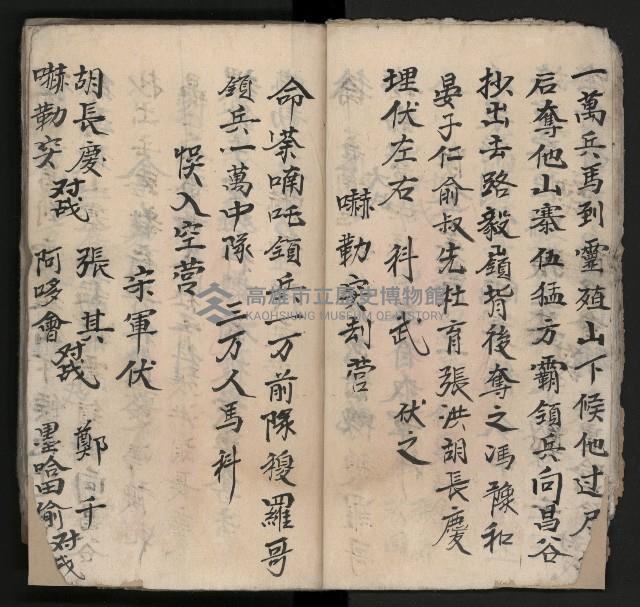 一萬兵馬到靈殖山下候他过尸
后奪他山寨伍猛方霸領兵向昌谷
抄出去路毅嶺背後奪之馮豫和
晏子仁俞叔先仕育張洪胡長慶
埋伏左右 科武 伏之
嚇勒突刮营
命荼喃吒領兵一万前隊稷羅哥
領兵一萬中隊 三万人馬科
悞入空营
宋軍伏
胡長慶 对战 張其 鄭千
嚇勒突 阿哆會 对战 墨哈田俞 对战
高雄市立歷史博物館
KAOHSIUNG MUSEUM OF HISTORY